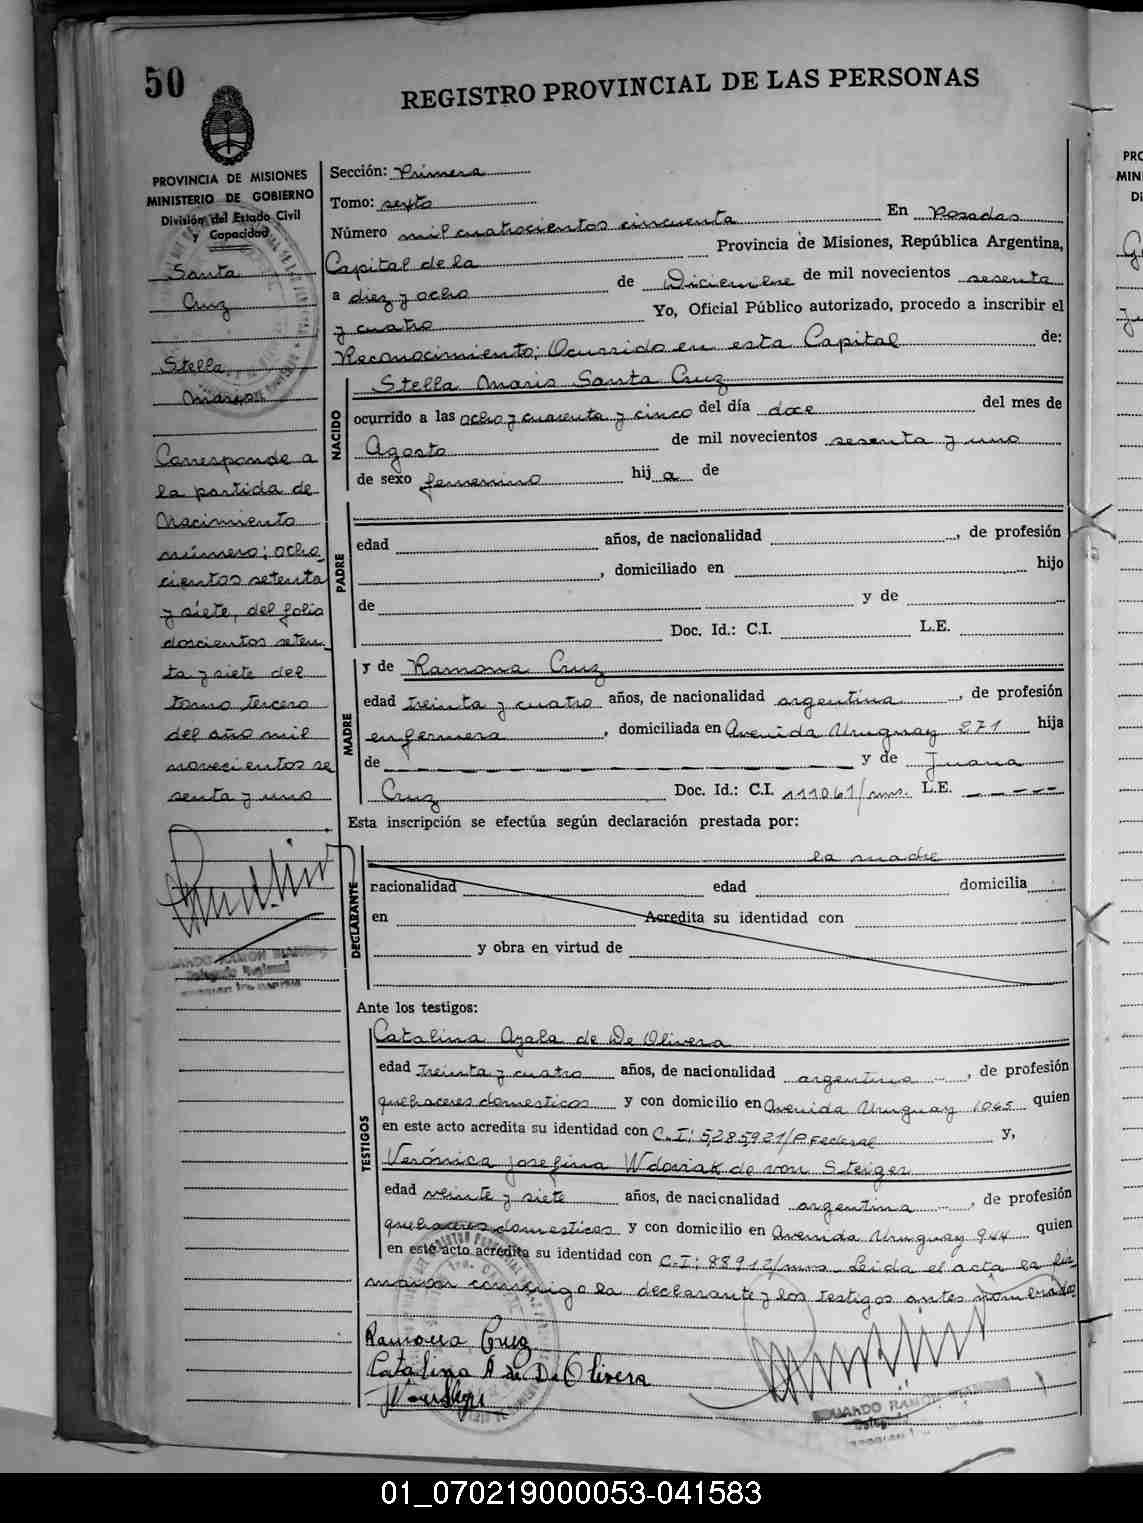 50
REGISTRO PROVINCIAL DE LAS PERSONAS
PROVINCIA DE MISIONES
MINISTERIO DE GOBIERNO
División del Estado Civil
y Capacidad
Santa
Cruz
Stella
Maris
Corresponde a
la partida de
Nacimiento
número; ocho
cientos setenta
y siete, del folio
doscientos seten
ta y siete del
tomo tercero
del año mil
novecientos se
senta y uno
EDUARDO RAMON
Delegado Regional
Sección: Primera
Tomo: sexto
Número mil cuatrocientos cincuenta En Posadas
Capital de la Provincia de Misiones, República Argentina,
a diez y ocho de Diciembre de mil novecientos sesenta
y cuatro Yo, Oficial Público autorizado, procedo a inscribir el
Reconocimiento; Ocurrido en esta Capital de:
NACIDO
Stella Maris Santa Cruz
ocurrido a las ocho y cuarenta y cinco del día doce del mes de
Agosto de mil novecientos sesenta y uno
de sexo femenino hij a de
PADRE
edad años, de nacionalidad , de profesión
, domiciliado en hijo
de y de
Doc. Id.: C.I. L.E.
MADRE
y de Ramona Cruz
edad treinta y cuatro años, de nacionalidad argentina , de profesión
enfermera , domiciliada en Avenida Uruguay 271 hija
de y de Juana
Cruz Doc. Id.: C.I. 111061/mns. L.E.
Esta inscripción se efectúa según declaración prestada por:
DECLARANTE
la madre
nacionalidad edad domicilia
en Acredita su identidad con
y obra en virtud de
Ante los testigos:
TESTIGOS
Catalina Ayala de De Olivera
edad treinta y cuatro años, de nacionalidad argentina , de profesión
quehaceres domesticos y con domicilio en Avenida Uruguay 1065 quien
en este acto acredita su identidad con C.I: 5,285,921/P.Federal y,
Verónica Josefina Wdoviak de von Steiger
edad veinte y siete años, de nacionalidad argentina , de profesión
quehaceres domesticos y con domicilio en Avenida Uruguay 944 quien
en este acto acredita su identidad con C.I: 88912/mns. Leida el acta la fir
maron conmigo la declarante y los testigos antes nombrados
Ramona Cruz
Catalina A de De Olivera
EDUARDO RAMON
01_070219000053-041583